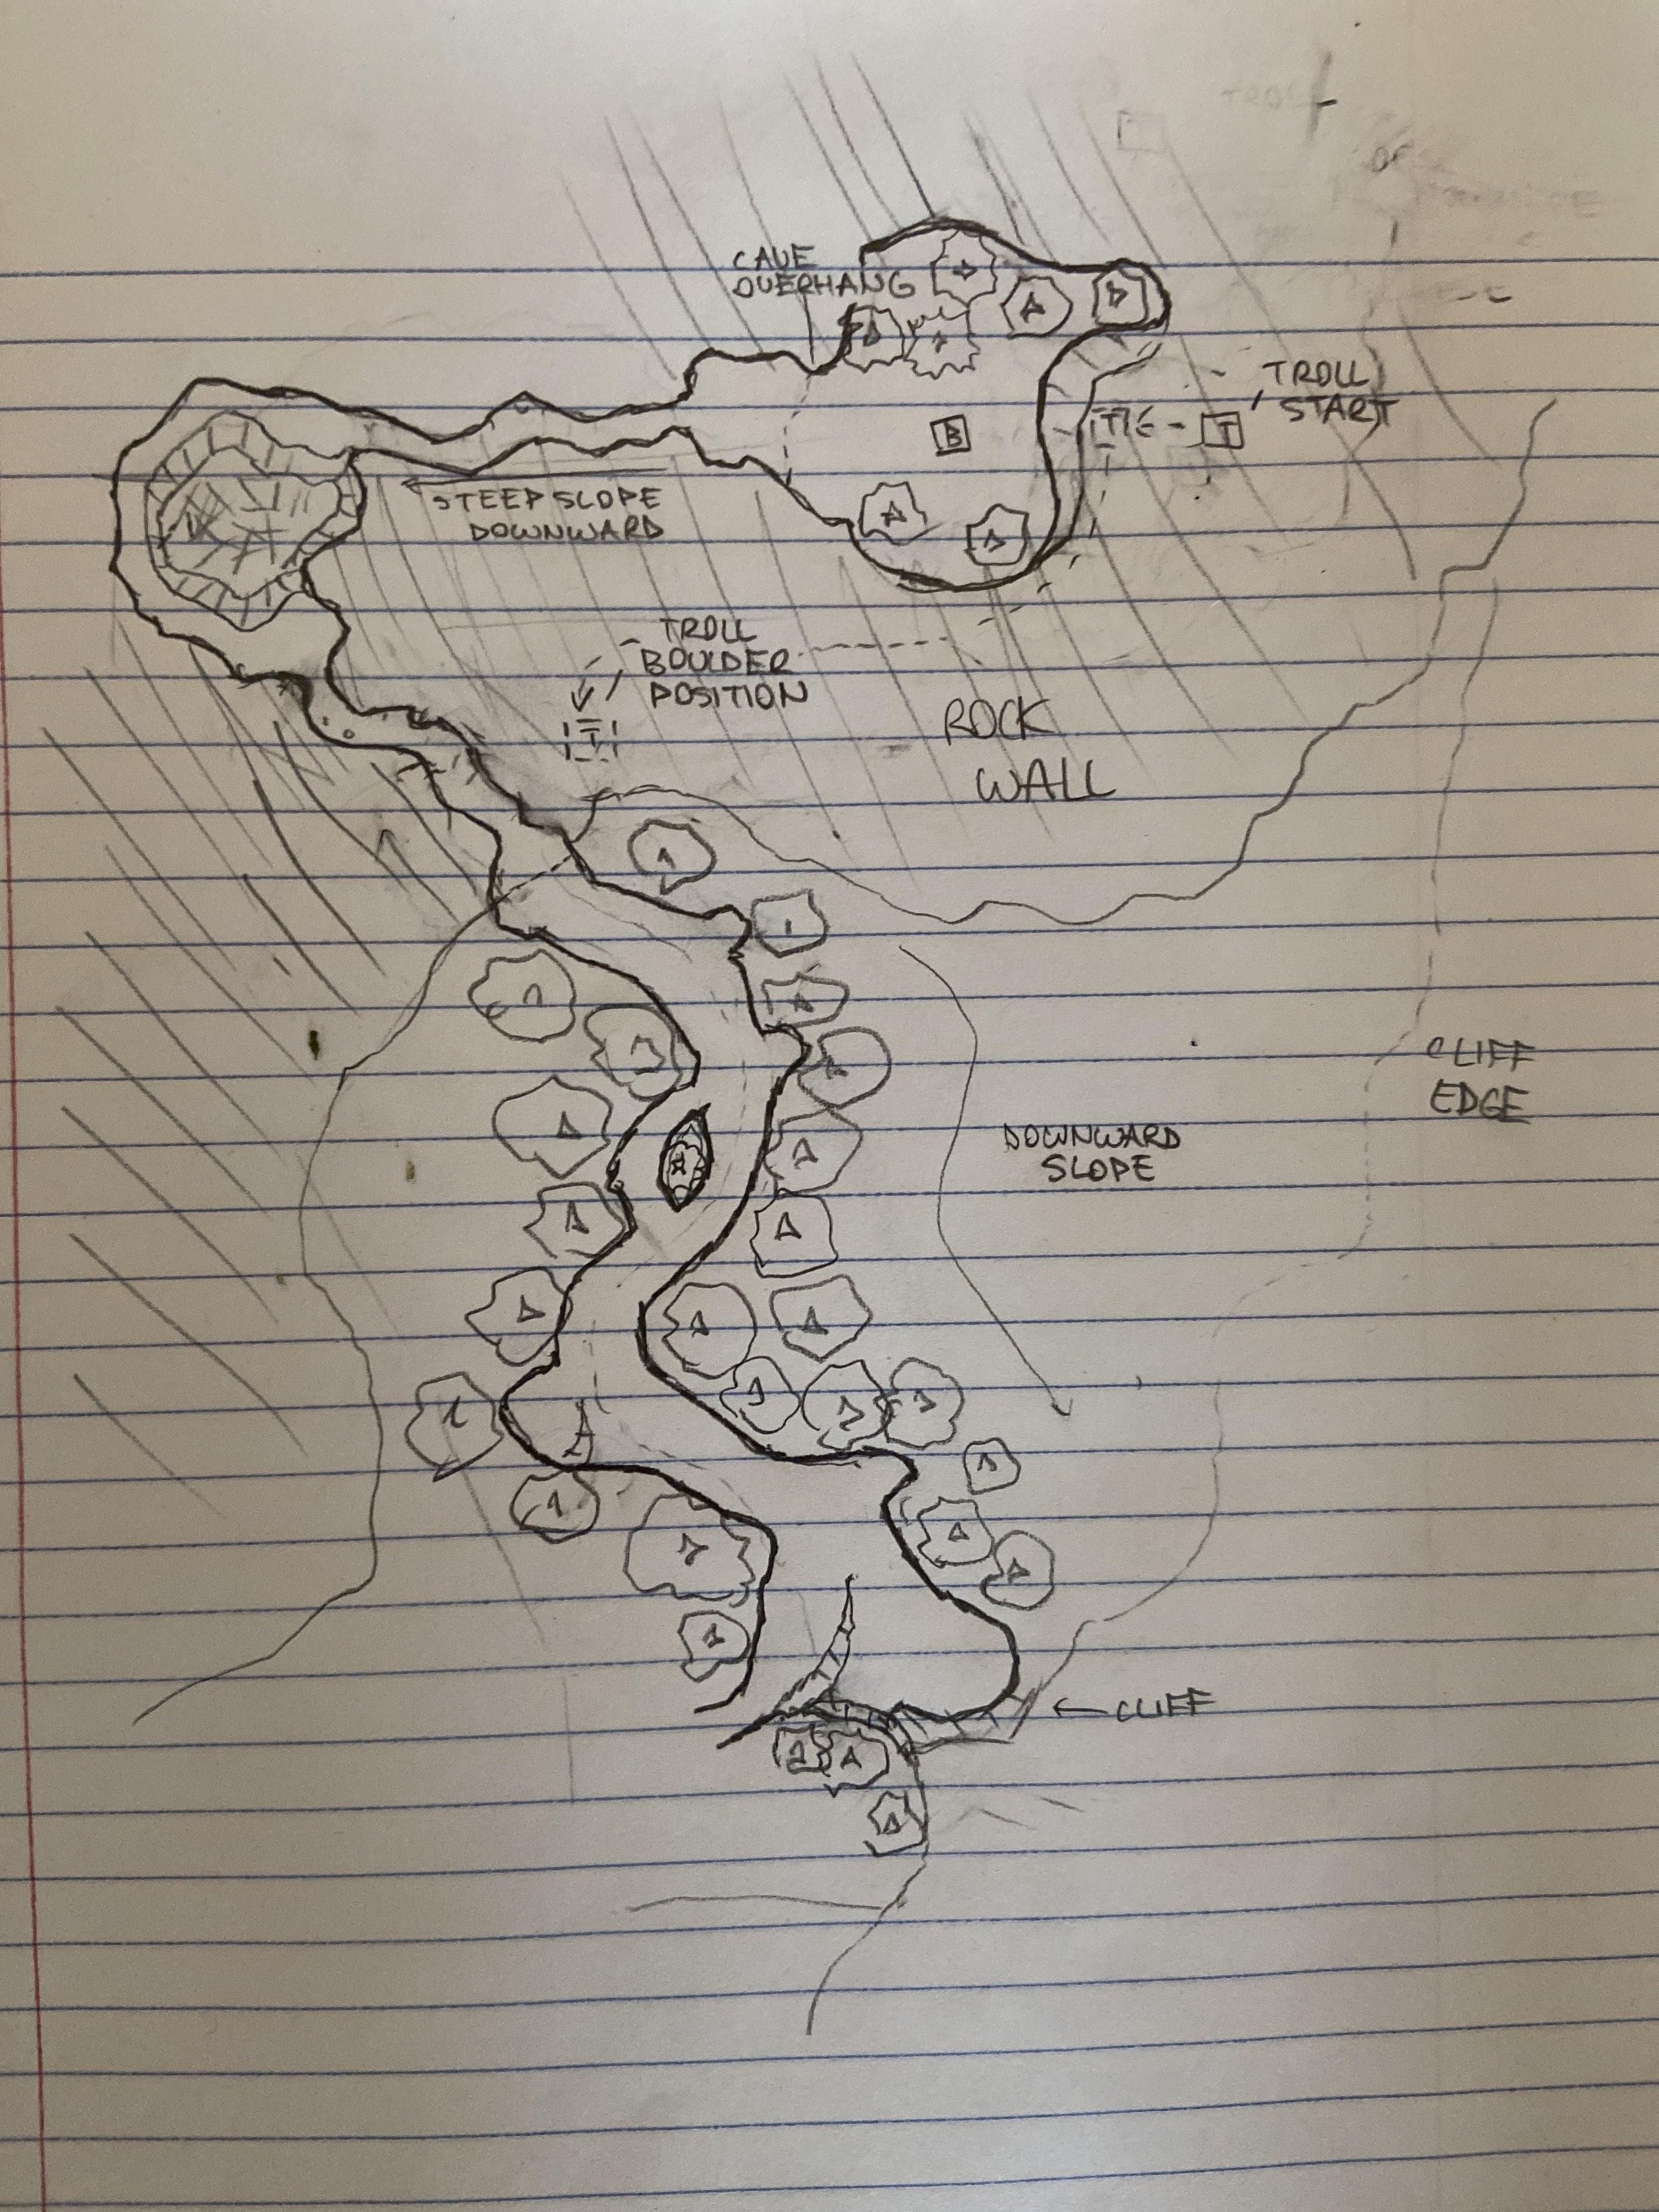 TROLL
CAVE
OVERHANG
TROLL
START
B
T
T
STEEP SLOPE
DOWNWARD
TROLL
BOULDER
POSITION
T
ROCK
WALL
CLIFF
EDGE
DOWNWARD
SLOPE
CLIFF